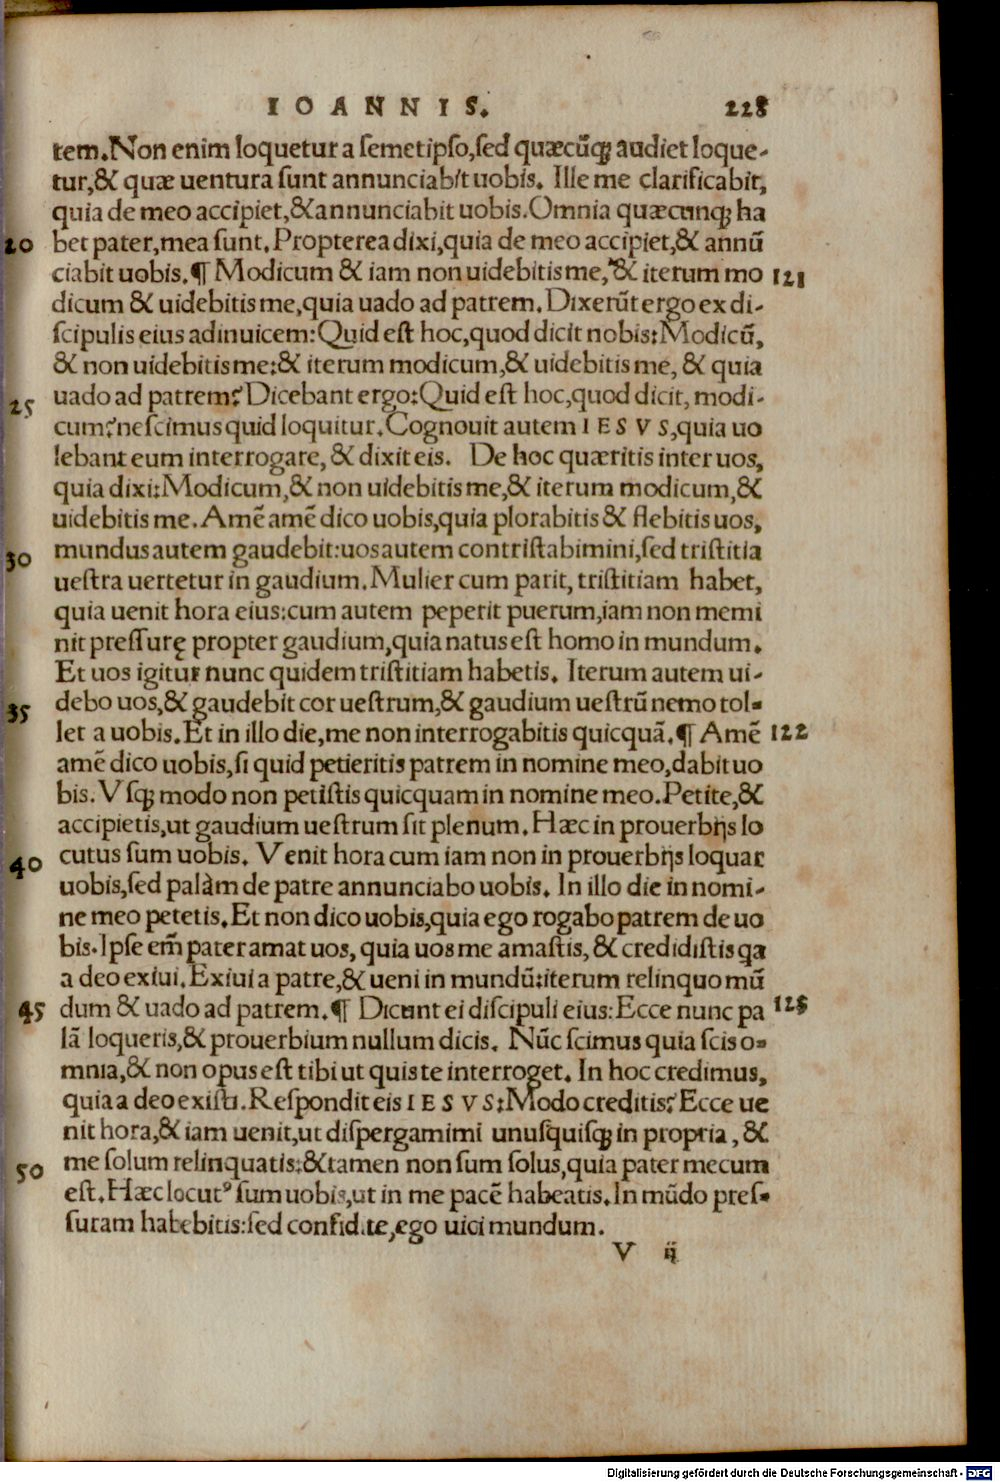 IOANNIS. 228
tem. Non enim loquetur a ſemetipſo, ſed quæcũꝗ audiet loque-
tur, & quæ uentura ſunt annunciabit uobis. Ille me clarificabit,
quia de meo accipiet, & annunciabit uobis. Omnia quæcunꝗ ha
20 bet pater, mea ſunt. Propterea dixi, quia de meo accipiet, & annũ
ciabit uobis. ¶ Modicum & iam non uidebitis me, & iterum mo 121
dicum & uidebitis me, quia uado ad patrem. Dixerũt ergo ex di-
ſcipulis eius adinuicem: Quid eſt hoc, quod dicit nobis: Modicũ,
& non uidebitis me: & iterum modicum, & uidebitis me, & quia
25 uado ad patrem? Dicebant ergo: Quid eſt hoc, quod dicit, modi-
cum? neſcimus quid loquitur. Cognouit autem IESVS, quia uo
lebant eum interrogare, & dixit eis. De hoc quæritis inter uos,
quia dixi: Modicum, & non uidebitis me, & iterum modicum, &
uidebitis me. Amẽ amẽ dico uobis, quia plorabitis & flebitis uos,
30 mundus autem gaudebit: uos autem contriſtabimini, ſed triſtitia
ueſtra uertetur in gaudium. Mulier cum parit, triſtitiam habet,
quia uenit hora eius: cum autem peperit puerum, iam non memi
nit preſſurę propter gaudium, quia natus eſt homo in mundum.
Et uos igitur nunc quidem triſtitiam habetis. Iterum autem ui-
35 debo uos, & gaudebit cor ueſtrum, & gaudium ueſtrũ nemo tol-
let a uobis. Et in illo die, me non interrogabitis quicquã. ¶ Amẽ 122
amẽ dico uobis, ſi quid petieritis patrem in nomine meo, dabit uo
bis. Vſꝗ modo non petiſtis quicquam in nomine meo. Petite, &
accipietis, ut gaudium ueſtrum ſit plenum. Hæc in prouerbijs lo
40 cutus ſum uobis. Venit hora cum iam non in prouerbijs loquar
uobis, ſed palàm de patre annunciabo uobis. In illo die in nomi-
ne meo petetis. Et non dico uobis, quia ego rogabo patrem de uo
bis. Ipſe em̃ pater amat uos, quia uos me amaſtis, & credidiſtis qa
a deo exiui. Exiui a patre, & ueni in mundũ: iterum relinquo mũ
45 dum & uado ad patrem. ¶ Dicunt ei diſcipuli eius: Ecce nunc pa 128
lã loqueris, & prouerbium nullum dicis. Nũc ſcimus quia ſcis o-
mnia, & non opus eſt tibi ut quis te interroget. In hoc credimus,
quia a deo exiſti. Reſpondit eis IESVS: Modo creditis? Ecce ue
nit hora, & iam uenit, ut diſpergamimi unuſquiſꝗ in propria, &
50 me ſolum relinquatis: & tamen non ſum ſolus, quia pater mecum
eſt. Hæc locutꝰ ſum uobis, ut in me pacẽ habeatis. In mũdo preſ-
ſuram habebitis: ſed confidite, ego uici mundum.
V ij
Digitalisierung gefördert durch die Deutsche Forschungsgemeinschaft - DFG